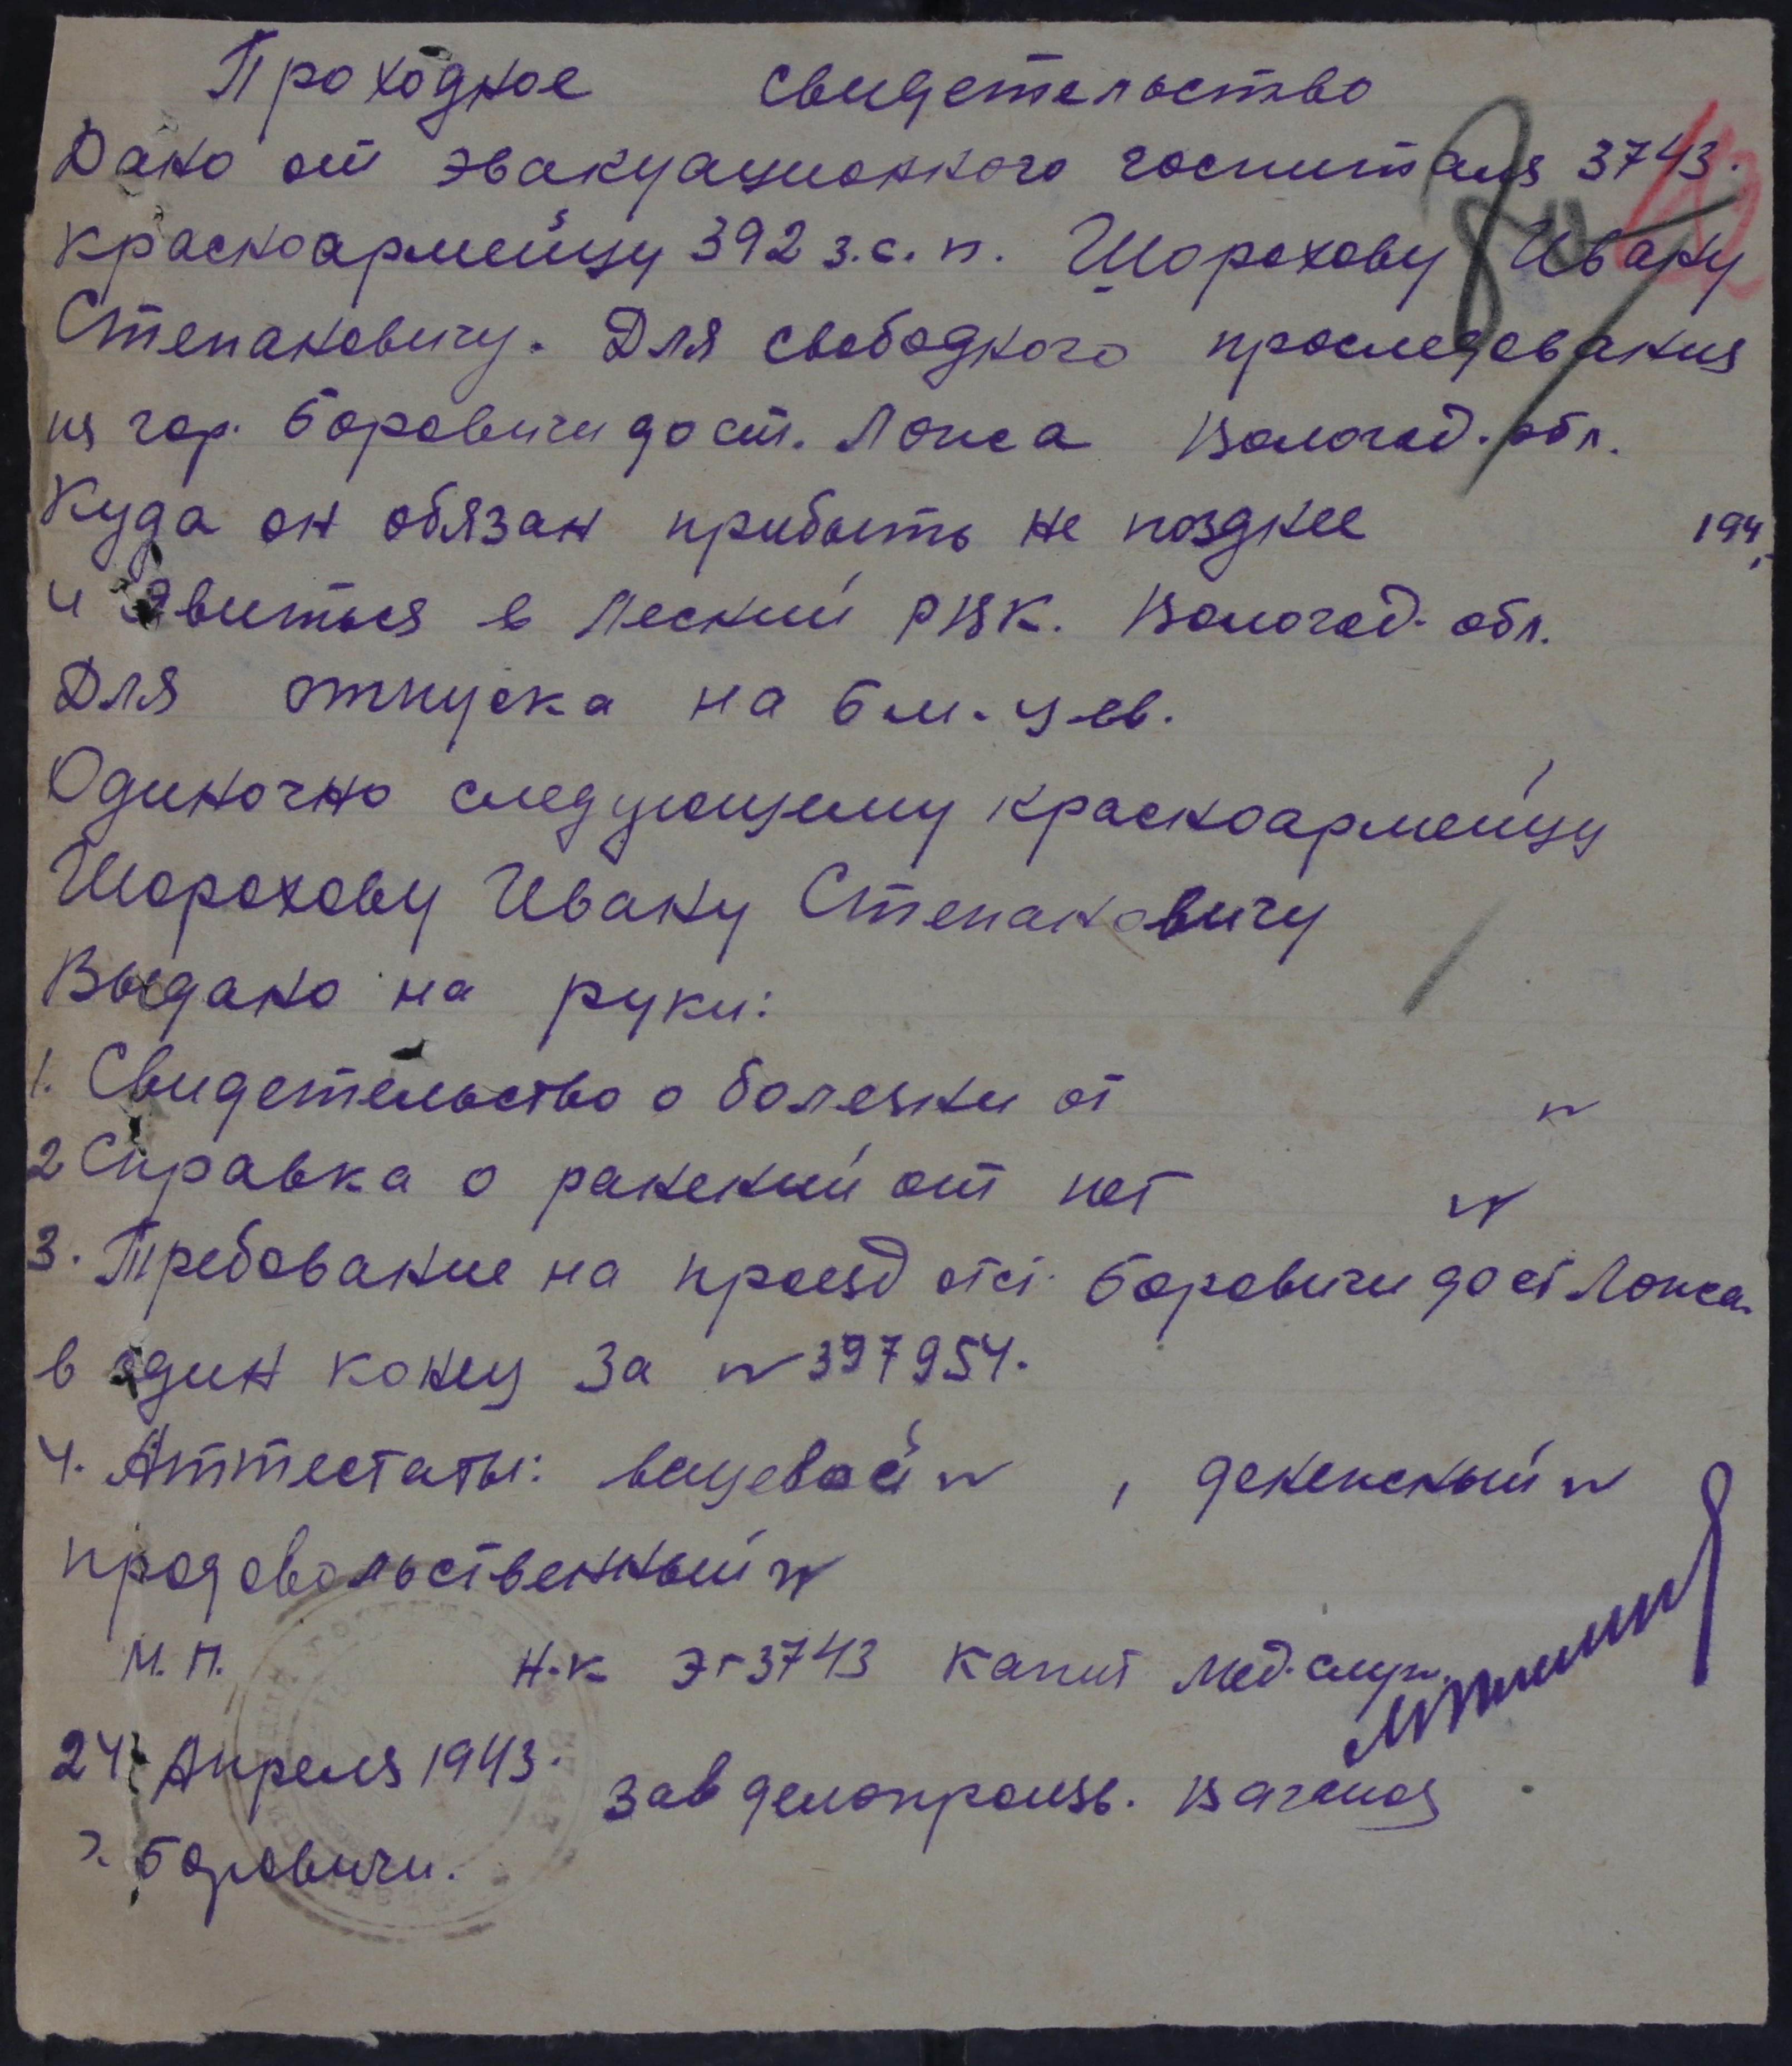 Проходное свидетельство
Дано от эвакуационного госпиталя 3743.
красноармейцу 392 з.с.п. Шорохову Ивану
Степановичу. Для свободного проследования
из гор. Боровичи до ст. Лонса Вологод. обл.
Куда он обязан прибыть не позднее 194
и явиться в Леский РВК. Вологод. обл.
Для отпуска на 6 м-цев.
Одиночно следующему красноармейцу
Шорохову Ивану Степановичу
Выдано на руки:
1. Свидетельство о болезни от №
2 Справка о ранений от нет №
3. Требование на проезд от ст. Боровичи до ст Лонса
в один конец за № 397954.
4. Аттестаты: вещевой №, денежный №
продовольственный №
М.П. Н-к ЭГ 3743 капит мед. служ.
24 Апреля 1943.
Зав делопроизв.
г. Боровичи.